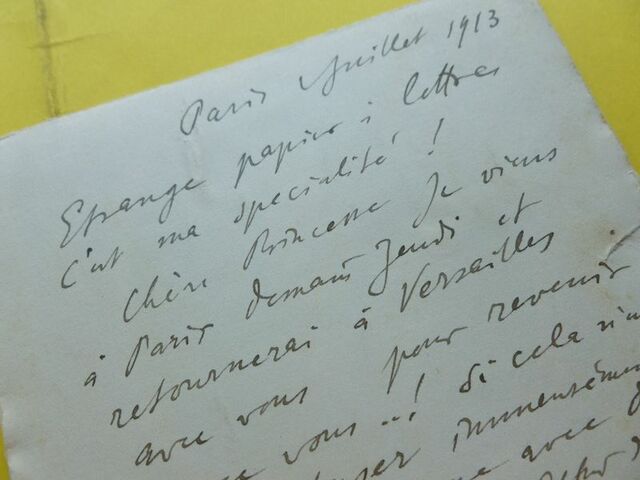 Paris Juillet 1913
Etrange papier à lettres
C'est ma specialité !
Chère Princesse Je viens
à Paris demain Jeudi et
retournerai à Versailles
avec vous pour revenir
vous ...! Si cela
immensément
avec